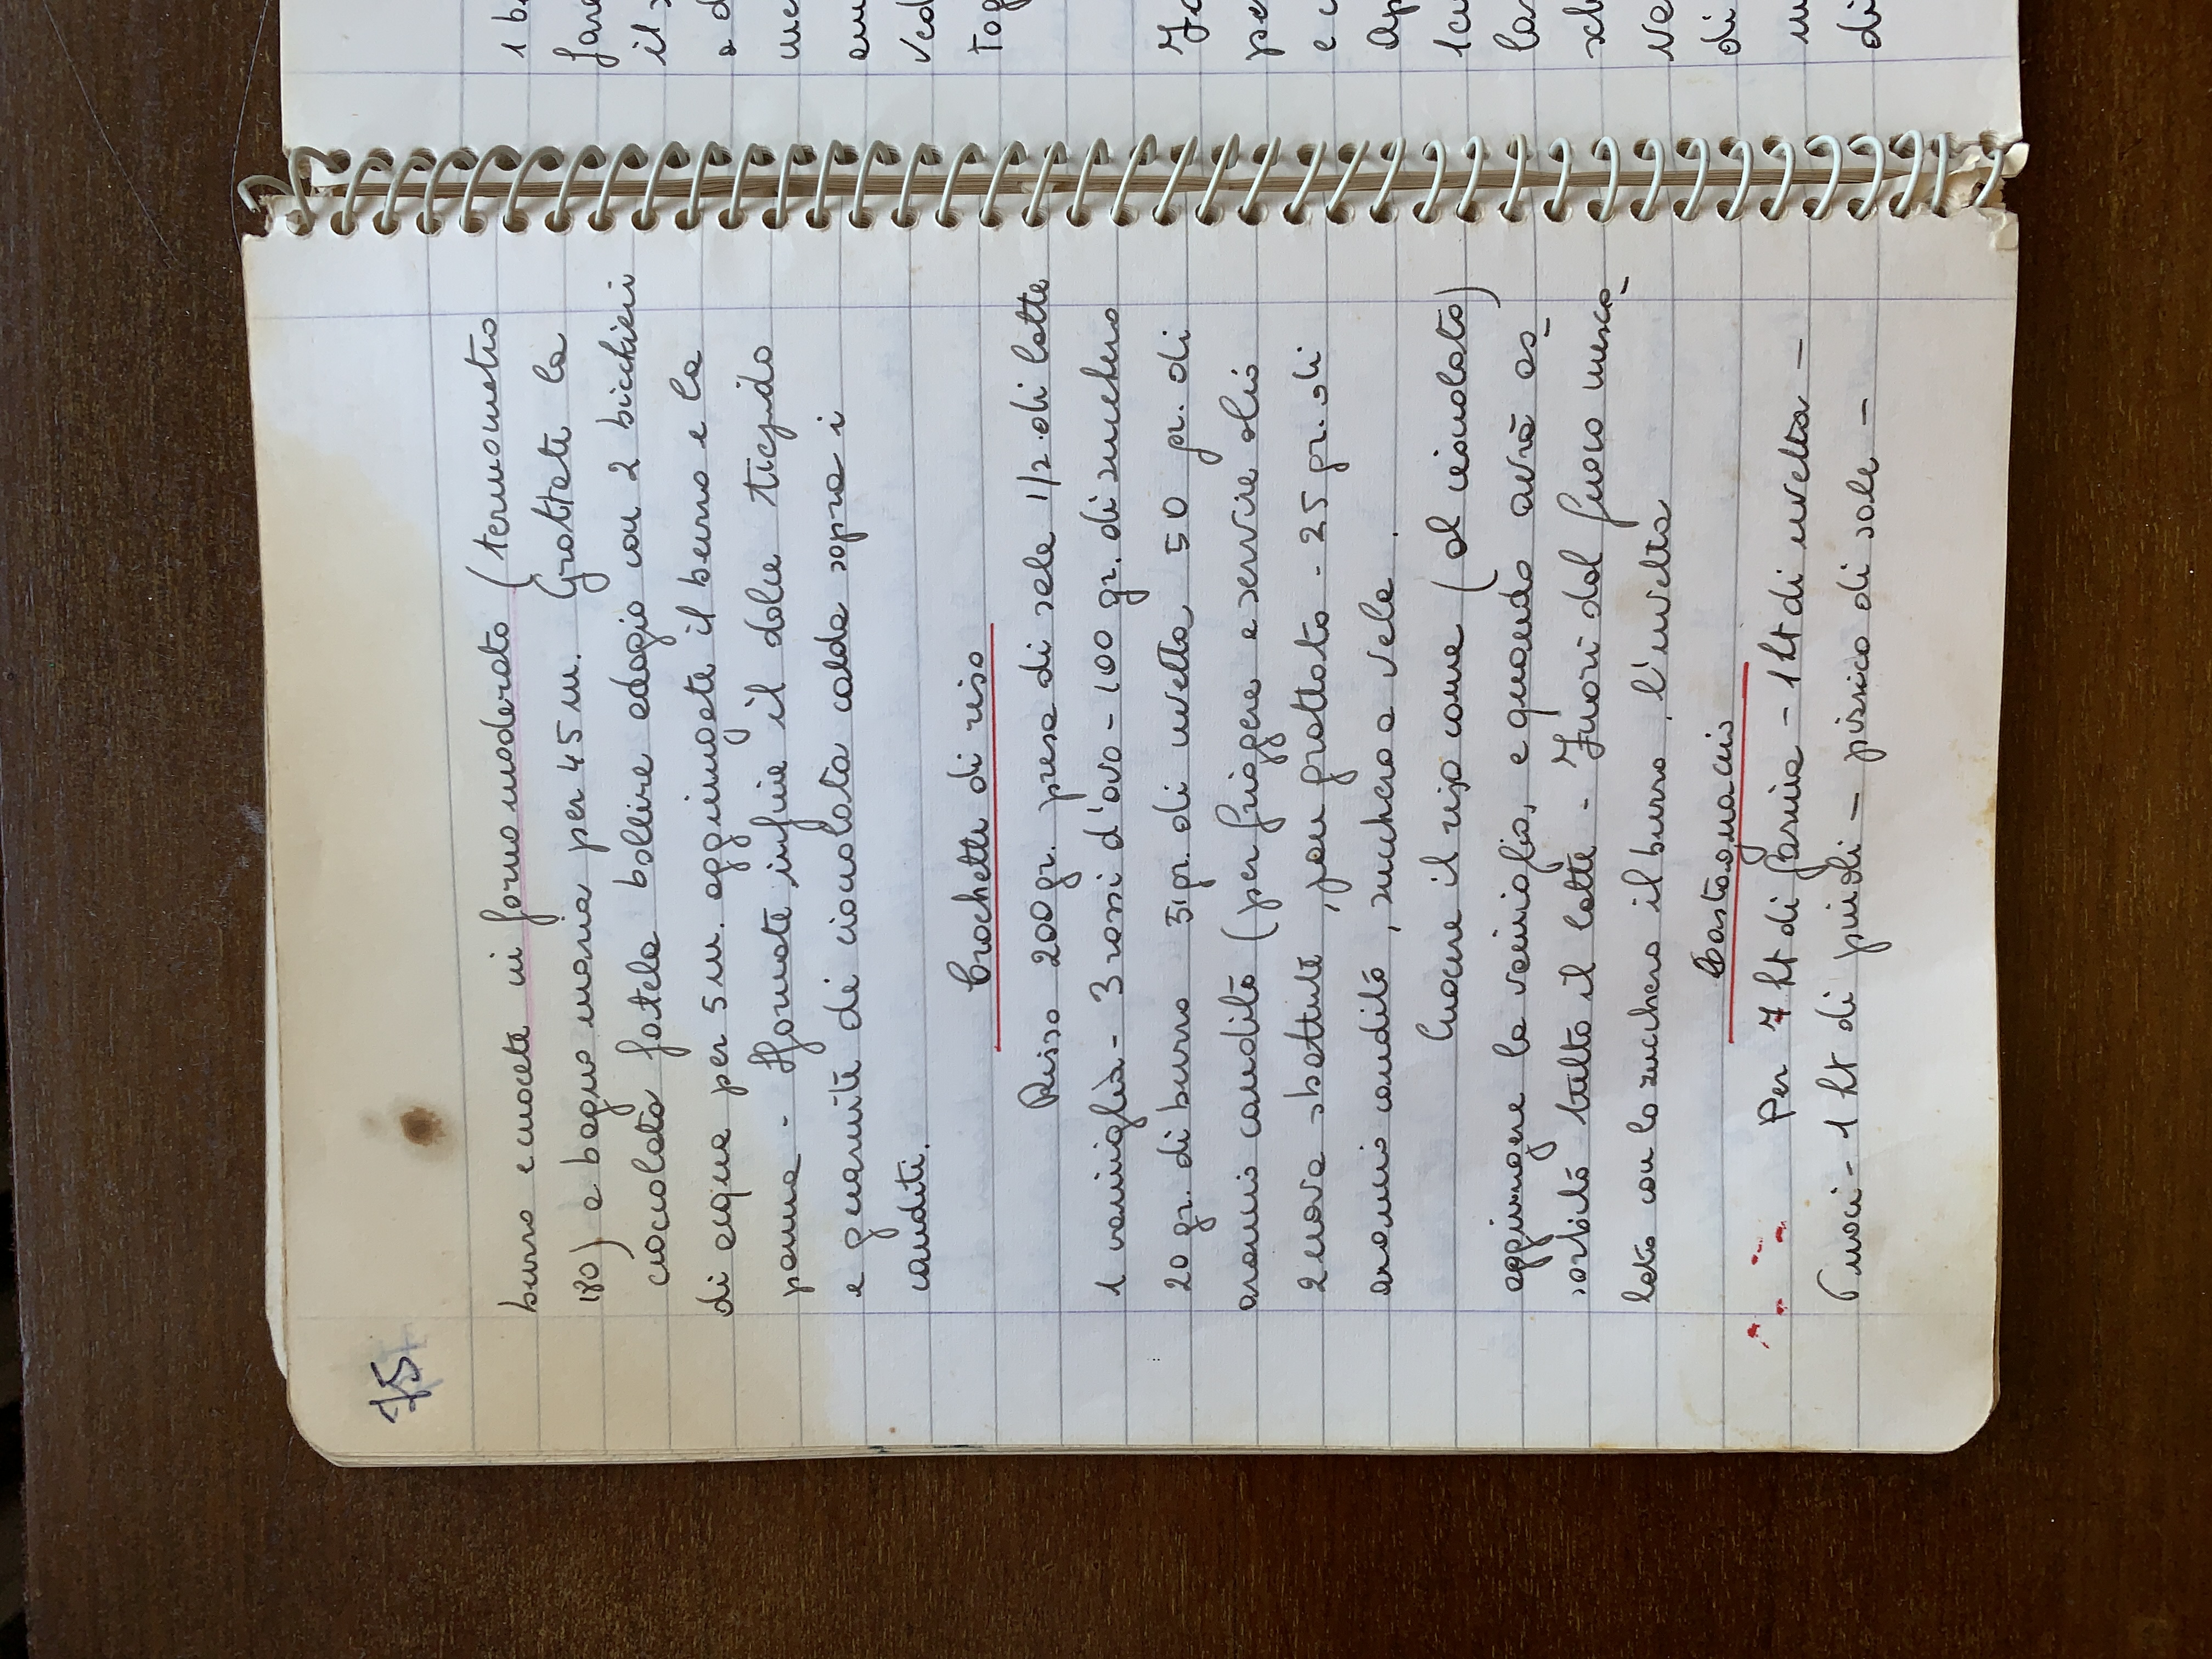 75
burro e cuocete in forno moderato (termometro
180) a bagno maria per 45 m. Grattate la
cioccolata fatela bollire adagio con 2 bicchieri
di acqua per 5 m. aggiungete il burro e la
panna - Sformate infine il dolce tiepido
e guarnite di cioccolata calda sopra i
canditi.
Crochette di riso
Risso 200 gr. presa di sale 1/2 di latte
1 vaniglia - 3 rossi d'ovo - 100 gr. di zucchero
20 gr. di burro gr. di uvetta 50 gr. di
arancio candito (per friggere e servire olio
2 uova sbattute, pan grattato - 25 gr. di
arancio candito, zucchero a vela.
Cuocere il riso come (al cioccolato)
aggiungere la vaniglia, e quando avrà as-
sorbito tutto il latte - Fuori dal fuoco mesco-
lato con lo zucchero il burro, l'uvetta
Castagnacio
Per 7 ht di farina - 1 ht di uvetta -
- 1 ht di pinoli - pizzico di sale -
1
il
a
di
Tog
1
di
di